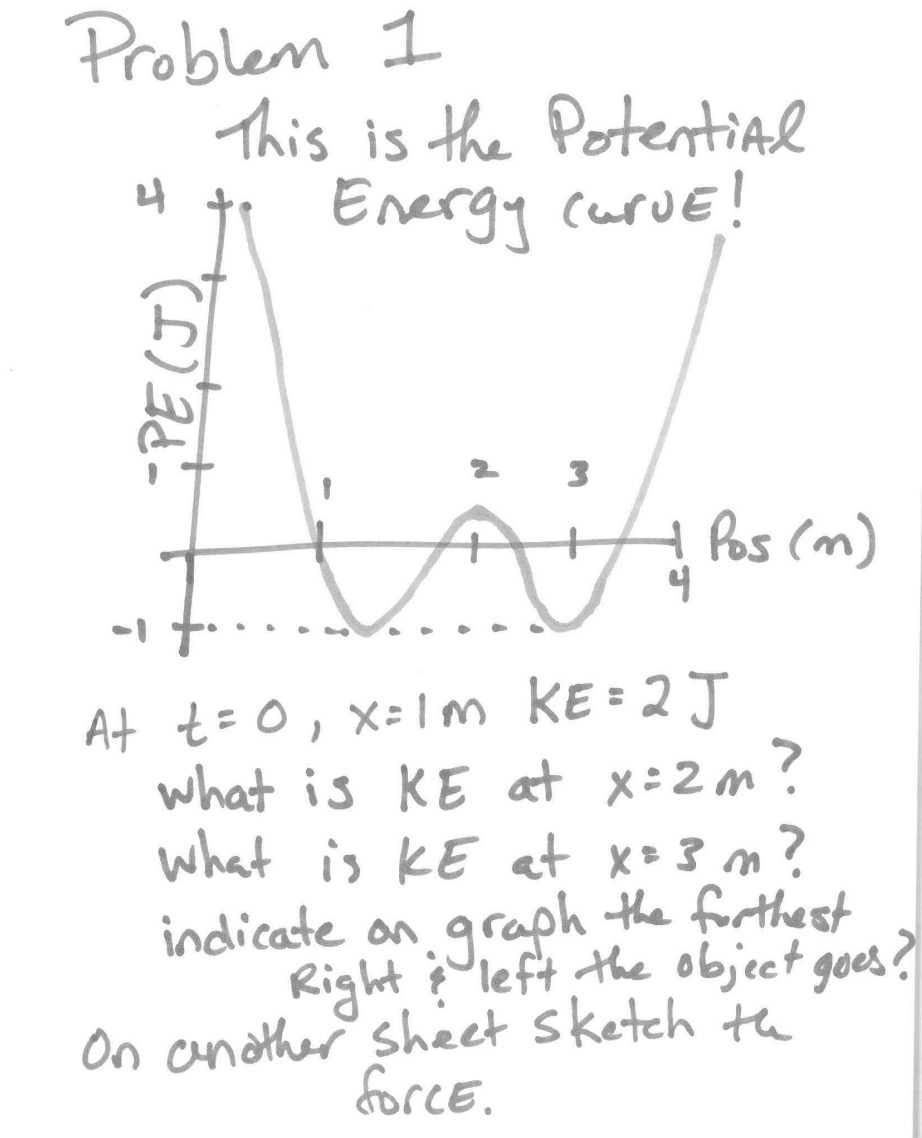 Problem 1
This is the Potential
Energy curve!
4
PE (J)
1 2 3
Pos (m)
4
-1
At t=0, x=1m KE=2J
what is KE at x=2m?
What is KE at x=3m?
indicate on graph the furthest
Right & left the object goes?
On another sheet sketch the
force.